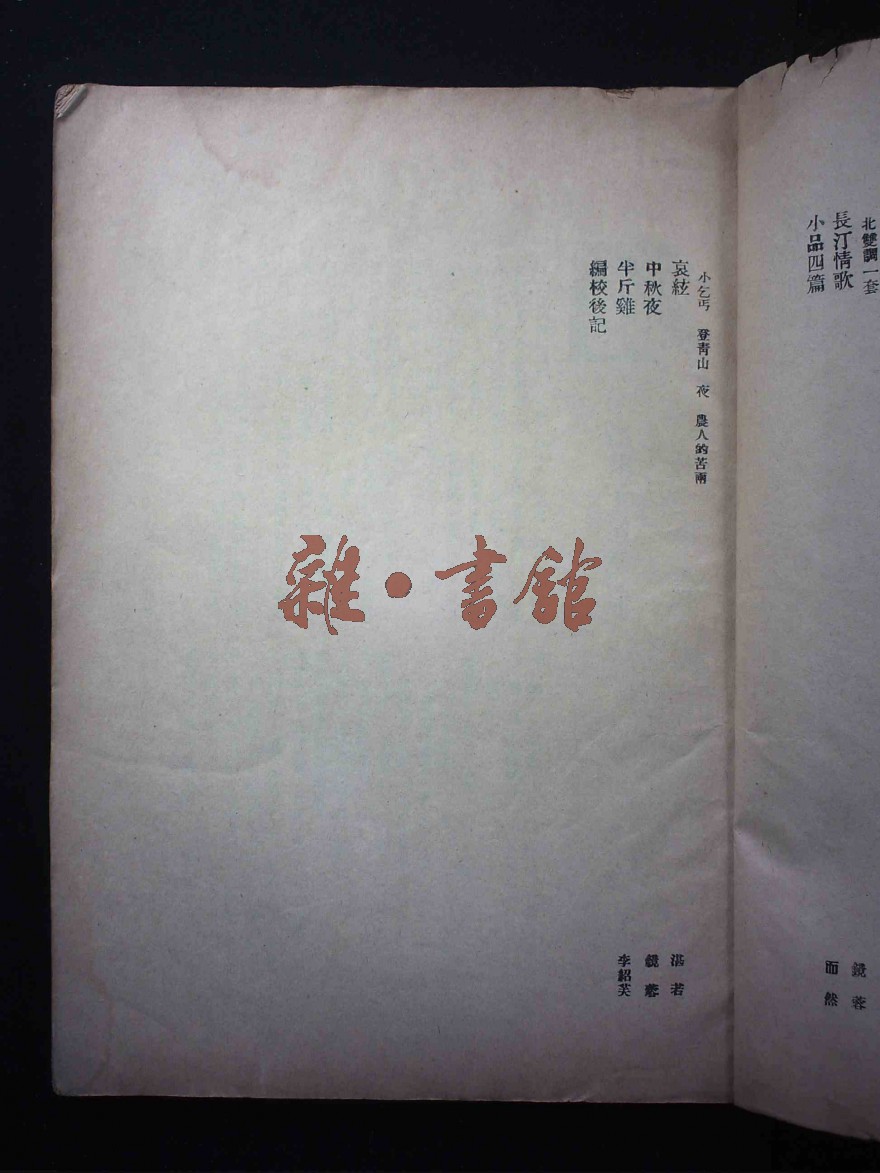 北雙調一套
長汀情歌 鏡蓉
小品四篇 而然
小乞丐 登青山 夜 農人的苦雨
哀絃 湛若
中秋夜 鏡蓉
半斤雞 李紹芙
編校後記
雜•書館